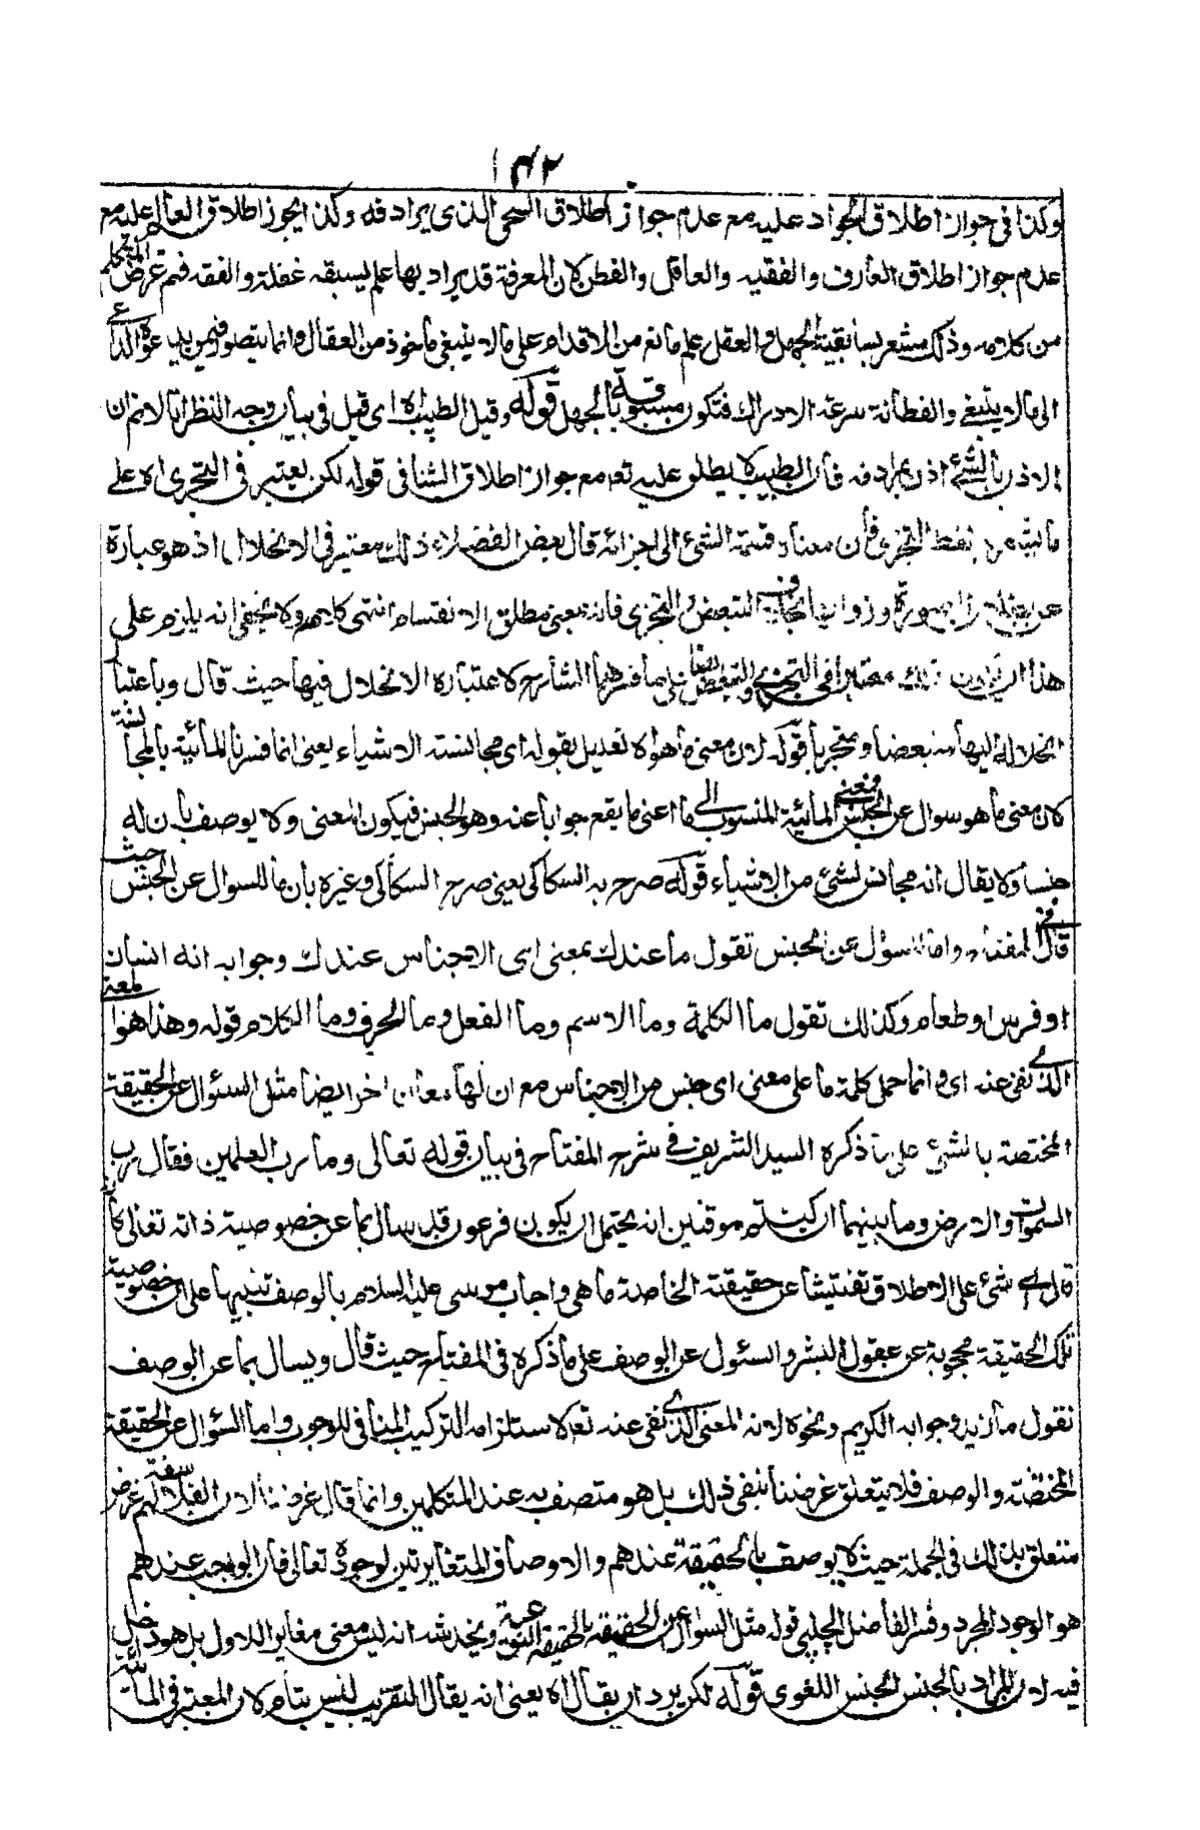 ١٤٢
وكذا في جواز اطلاق الجواد عليه مع عدم جواز اطلاق السخى الذى يرادفه وكذا يجوز اطلاق العالم عليه مع
عدم جواز اطلاق العارف والفقيه والعاقل والفطن لان المعرفة قد يراد بها علم يسبقه غفلة والفقه فهم غرض المتكلم
من كلامه وذلك مشعر بسابقية الجهل والعقل علم مانع من الاقدام على مالا ينبغى ماخوذ من العقال وانما يتصور فيمن يدعوه الداعى
الى مالا ينبغى والفطانة سرعة الادراك فتكون مسبوقة بالجهل قوله وقيل الطبيب اه اى قيل فى بيان وجه النظر انا لانم ان
الاذن بالشئ اذن بمرادفه فان الطبيب لا يطلق عليه تعم مع جواز اطلاق الشافى قوله لكن يعتبر فى التجزى اه على
ما يشعر به لفظ التجزى فان معناه قسمة الشئ الى اجزائه قال بعض الفضلاء ذلك معتبر فى الانحلال اذ هو عبارة
عن بطلان صورة وزوا بخلاف التبعض والتجزى فانه بمعنى مطلق الانقسام انتهى كلامه ولا يخفى انه يلزم على
هذا ان يكون ذلك معتبرا فى التجزى والتبعض ايضا على ما فسرهما الشارح لاعتباره الانحلال فيها حيث قال وباعتبار
انحلاله اليها متبعضا ومتجزيا قوله لان معنى ما هو اه تعليل بقوله اى مجانسته الاشياء يعنى انما فسرنا المائية بالمجانسة
لان معنى ما هو سوال عن الجنس فمعنى المائية المنسوب الى ما اعنى ما يقع جوابا عنه وهو الجنس فيكون المعنى ولا يوصف بان له
جنسا ولا يقال انه مجانس لشئ من الاشياء قوله صرح به السكاكى يعنى صرح السكاكى وغيره بان ما للسوال عن الجنس حيث
قال فى المفتاح واما ما فسوال عن الجنس تقول ما عندك بمعنى اى الاجناس عندك وجوابه انه انسان
او فرس او طعام وكذلك تقول ما الكلمة وما الاسم وما الفعل وما الحرف وما الكلام قوله وهذا هو المعنى
الذى نفى عنه اى وانما حمل كلمة ما على معنى اى جنس من الاجناس مع ان لها معان اخر ايضا مثل السئوال عن الحقيقة
المختصة بالشئ على ما ذكره السيد الشريف فى شرح المفتاح فى بيان قوله تعالى وما رب العلمين فقال رب
السموات والارض وما بينهما ان كنتم موقنين انه يحتمل ان يكون فرعون قد سال بما عن خصوصية ذاته تعالى كانه
قال اى شئ على الاطلاق تفتيشا عن حقيقته الخاصة ما هى واجاب موسى عليه السلام بالوصف تنبيها على ان خصوصية
تلك الحقيقة محجوبة عن عقول البشر والسئول عن الوصف على ما ذكره فى المفتاح حيث قال ويسال بما عن الوصف
تقول ما زيد وجوابه الكريم ونحوه لانه المعنى الذى نفى عنه تعم لاستلزامه التركيب المنافى للوجوب واما السؤال عن الحقيقة
المختصة والوصف فلا يتعلق غرضنا بنفى ذلك بل هو متصف به عند المتكلمين وانما قال غرضنا لان الفلاسفة لهم غرض
متعلق بذلك فى الجملة حيث لا يوصف بالحقيقة عندهم والاوصاف المتغايرتين لوجوده تعالى فان الواجب عندهم
هو الوجود المجرد وفسر الفاضل الچلپى قوله مثل السوال عن الحقيقة بالحقيقة النوعية ويخدشه انه ليس معنى مغاير اللاول بل هو داخل
فيه لان المراد بالجنس الجنس اللغوى قوله لكن يرد ان يقال اه يعنى انه يقال التقريب ليس بتام لان المعتبر فى المائية